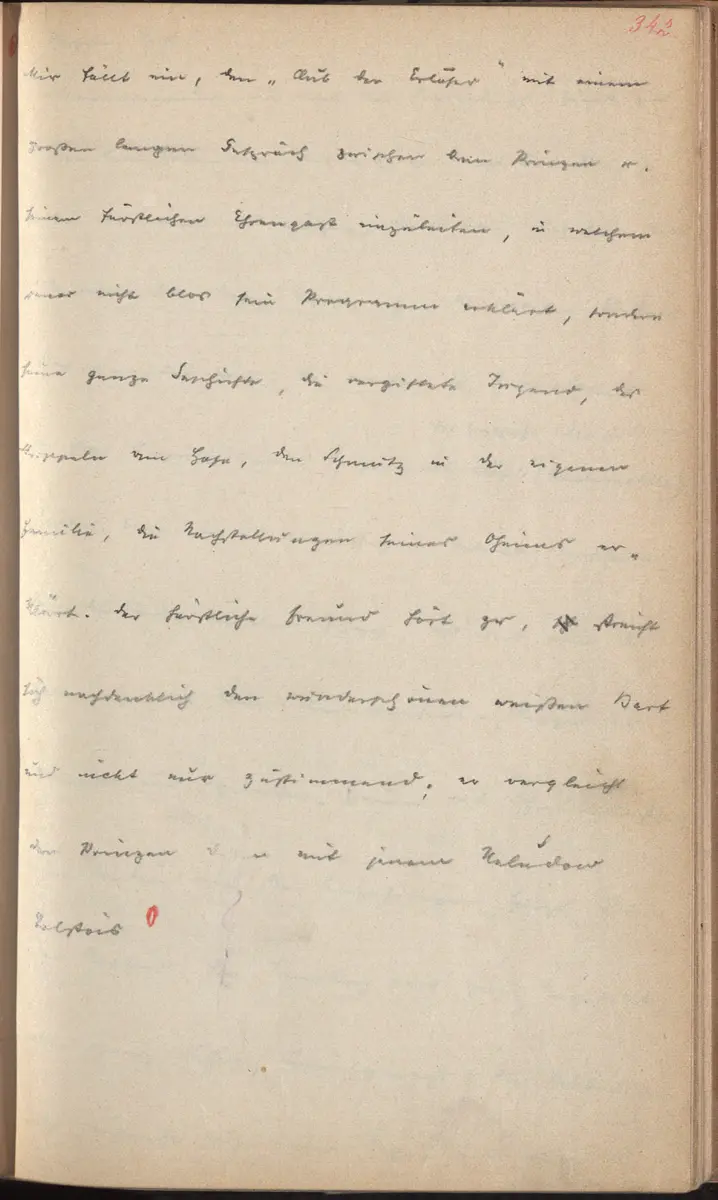 34 5/2
Mir fällt ein, den „Club der Erlöser" mit einem
großen langen Gespräch zwischen dem Prinzen u.
seinem fürstlichen Ehrengast einzuleiten, in welchem
jener nicht blos sein Programm erklärt, sondern
seine ganze Geschichte, die vergiftete Jugend, das
am Hofe, den Schmutz in der eigenen
Familie, die Nachstellungen seines Oheims er-
klärt. Der fürstliche Freund hört zu, streicht
sich nachdenklich den wunderschönen weißen Bart
und nickt nur zustimmend; er vergleicht
den Prinzen mit jenem Neludow
Tolstois